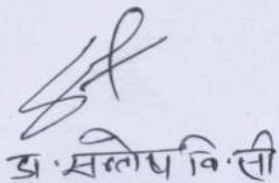 डा. सन्तोष वि. सी